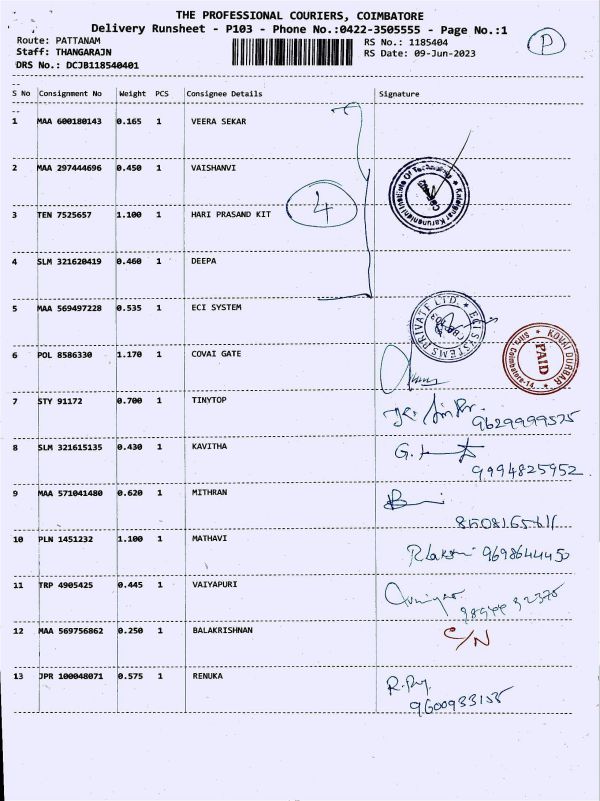 THE PROFESSIONAL COURIERS, COIMBATORE
Delivery Runsheet - P103 - Phone No.:0422-3505555 - Page No.:1
Route: PATTANAM RS No.: 1185404
Staff: THANGARAJN RS Date: 09-Jun-2023
DRS No.: DCJB118540401
P
S No Consignment No Weight PCS Consignee Details Signature
1 MAA 600180143 0.165 1 VEERA SEKAR
2 MAA 297444696 0.450 1 VAISHANVI
Karunanidhi Institute Of Technology
3 TEN 7525657 1.100 1 HARI PRASAND KIT
4
4 SLM 321620419 0.460 1 DEEPA
5 MAA 569497228 0.535 1 ECI SYSTEM
ECI SYSTEMS PRIVATE LTD.
6 POL 8586330 1.170 1 COVAI GATE
KOVAI DURBAR
PAID
7 STY 91172 0.700 1 TINYTOP
9629999525
8 SLM 321615135 0.430 1 KAVITHA
G.
9994825952
9 MAA 571041480 0.620 1 MITHRAN
10 PLN 1451232 1.100 1 MATHAVI
9698644450
11 TRP 4905425 0.445 1 VAIYAPURI
12 MAA 569756862 0.250 1 BALAKRISHNAN
C/N
13 JPR 100048071 0.575 1 RENUKA
9600933155